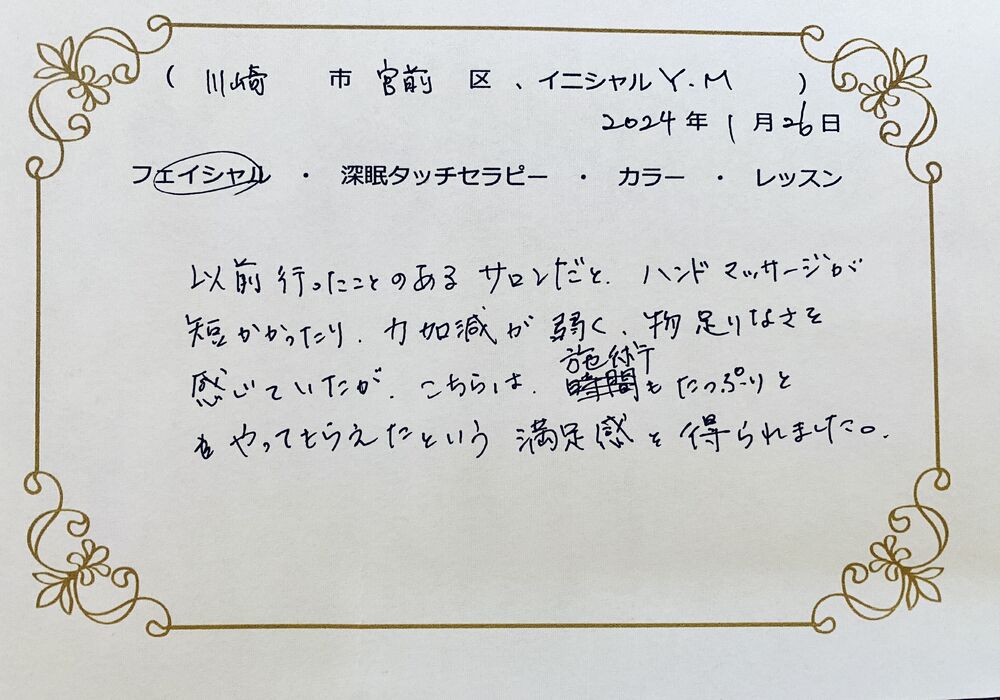 ( 川崎 市 宮前 区 、イニシャル Y.M )
2024 年 1 月 26 日
フェイシャル ・ 深眠タッチセラピー ・ カラー ・ レッスン
以前行ったことのあるサロンだと、ハンドマッサージが
短かかったり、力加減が弱く、物足りなさを
感じていたが、こちらは、施術もたっぷりと
やってもらえたという満足感を得られました。